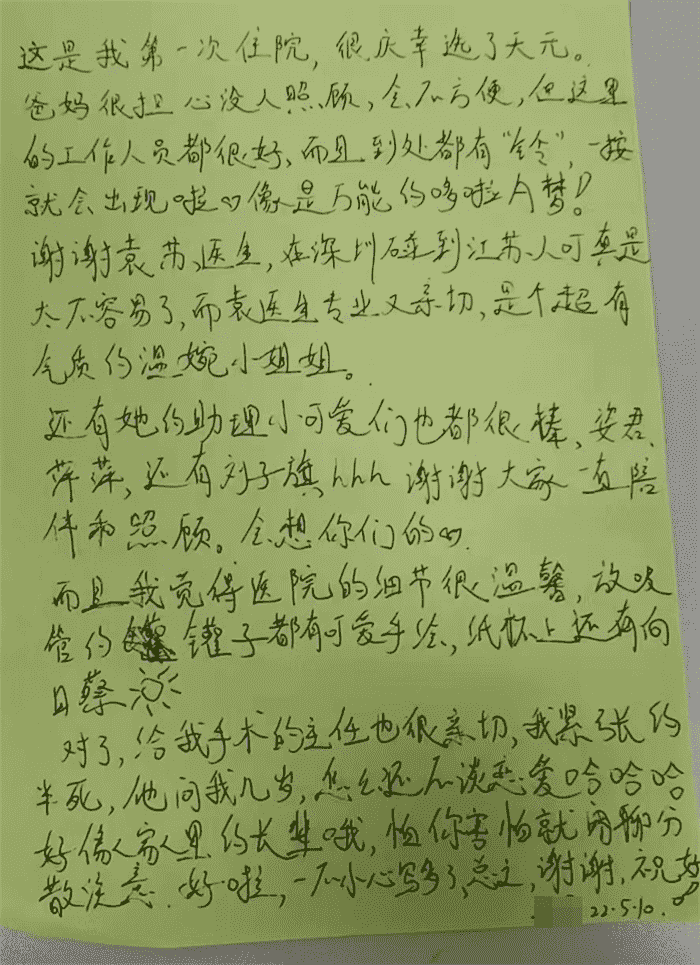 这是我第一次住院，很庆幸选了天元。
爸妈很担心没人照顾，会不方便，但这里
的工作人员都很好、而且到处都有“铃”，一按
就会出现啦♡像是万能的哆啦A梦！
谢谢袁苏医生，在深圳碰到江苏人可真是
太不容易了，而袁医生专业又亲切，是个超有
气质的温婉小姐姐。
还有她的助理小可爱们也都很棒，姿君、
萍萍，还有刘子旗hhh 谢谢大家一直陪
伴和照顾。会想你们的♡
而且我觉得医院的细节很温馨，放吸
管的罐子都有可爱手绘，纸杯上还有向
日葵
对了，给我手术的主任也很亲切，我紧张的
半死，他问我几岁，怎么还不谈恋爱哈哈哈
好像家里的长辈哦，怕你害怕就闲聊分
散注意．好啦，一不小心写多了，总之，谢谢，祝好
22.5.10.